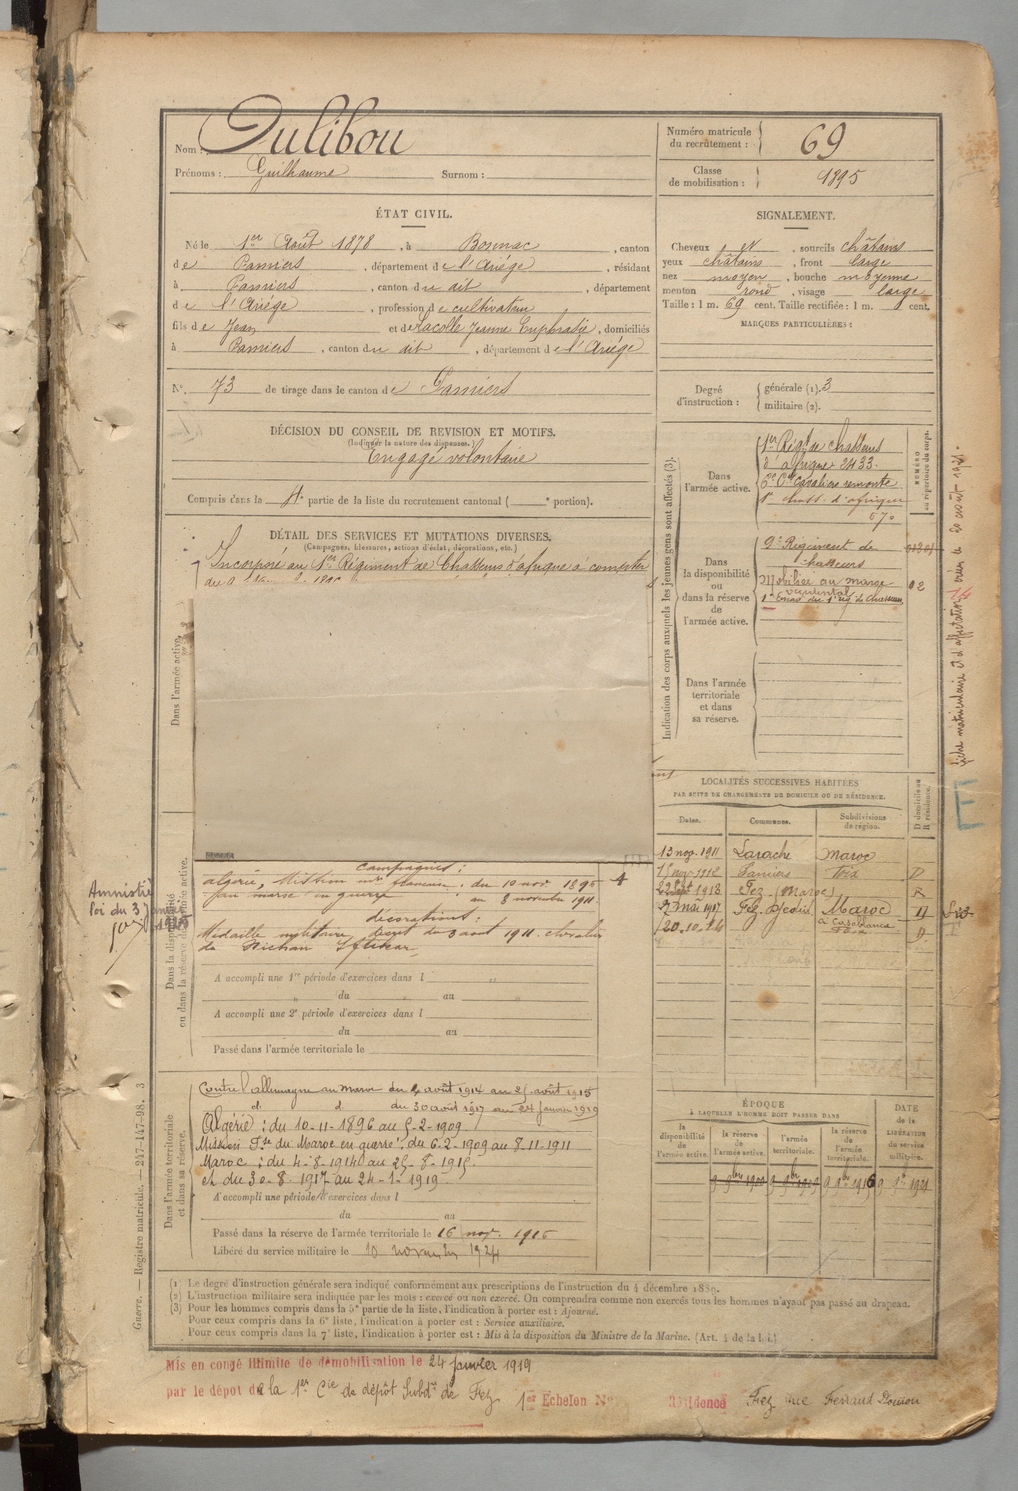 Nom : Dulibou
Prénoms : Guilhaume Surnom :
Numéro matricule du recrutement : 69
Classe de mobilisation : 1895
ÉTAT CIVIL.
Né le 1er Août 1878, à Bonnac, canton
de Pamiers, département de l'Ariége, résidant
à Pamiers, canton du dit, département
de l'Ariége, profession de cultivateur
fils de Jean et de Lacolle Jeanne Euphrasie, domiciliés
à Pamiers, canton du dit, département de l'Ariége
N° 73 de tirage dans le canton de Pamiers
SIGNALEMENT.
Cheveux et, sourcils châtains
yeux châtains, front large
nez moyen, bouche moyenne
menton rond, visage large
Taille : 1 m. 69 cent. Taille rectifiée : 1 m. cent.
MARQUES PARTICULIÈRES :
Degré d'instruction : générale (1). 3
militaire (2).
DÉCISION DU CONSEIL DE REVISION ET MOTIFS.
(Indiquer la nature des dispenses.)
Engagé volontaire
Compris dans la 4e partie de la liste du recrutement cantonal ( e portion).
DÉTAIL DES SERVICES ET MUTATIONS DIVERSES.
(Campagnes, blessures, actions d'éclat, décorations, etc.)
Incorporé au 1er Régiment de Chasseurs d'afrique à compter
Indication des corps auxquels les jeunes gens sont affectés (3).
NUMÉRO au répertoire du corps.
Dans l'armée active.
1er Régt de chasseurs
d'afrique 2433.
6e Cie cavaliers remonte
1er chass. d'afrique
570
Dans la disponibilité ou dans la réserve de l'armée active.
9e Régiment de
chasseurs
Mobilisé au maroc
occidental
1er Escad. du 1er rég. de chasseurs
02
Dans l'armée territoriale et dans sa réserve.
fiche matriculaire et d'affectation créée le 20 août 1921.
LOCALITÉS SUCCESSIVES HABITÉES
PAR SUITE DE CHANGEMENTS DE DOMICILE OU DE RÉSIDENCE.
Dates. Communes. Subdivisions de région. D domicile ou R résidence.
13 nov. 1911 Larache Maroc
Pamiers Foix D
22 Sept 1913 Fez (Maroc) R
27 mai 1917 Fez Djedid Maroc D
à Casablanca
20.10.14 Foix D
Dans l'armée active.
Dans la disponibilité ou dans la réserve de l'armée active.
Amnistié
loi du 3 Janvier
1925
campagnes :
algérie, Mission mre française : du 10 nov 1896
au maroc en guerre : au 8 novembre 1911.
décorations :
Médaille militaire, décret du 3 aout 1911. chevalier
du Nichan Iftikar
A accompli une 1re période d'exercices dans l
du au
A accompli une 2e période d'exercices dans l
du au
Passé dans l'armée territoriale le
Dans l'armée territoriale et dans sa réserve.
Contre l'allemagne au maroc du 4 août 1914 au 25 août 1915
d. d. du 30 août 1917 au 24 janvier 1919
Algérie : du 10-11-1896 au 5-2-1909.
Mission Fse du Maroc en guerre : du 6-2-1909 au 8-11-1911
Maroc : du 4-8-1914 au 25-8-1915.
et du 30-8-1917 au 24-1-1919.
A accompli une période d'exercices dans l
du au
Passé dans la réserve de l'armée territoriale le 16 nov. 1916
Libéré du service militaire le 10 novembre 1924
ÉPOQUE
À LAQUELLE L'HOMME DOIT PASSER DANS
DATE de la LIBÉRATION du service militaire.
la disponibilité de l'armée active. la réserve de l'armée active. l'armée territoriale. la réserve de l'armée territoriale.
9 9bre 1900 9 9bre 1909 9 9bre 1916 9 9bre 1921
Guerre. — Registre matricule. — 247-147-98. 3
(1) Le degré d'instruction générale sera indiqué conformément aux prescriptions de l'instruction du 4 décembre 1889.
(2) L'instruction militaire sera indiquée par les mots : exercé ou non exercé. On comprendra comme non exercés tous les hommes n'ayant pas passé au drapeau.
(3) Pour les hommes compris dans la 5e partie de la liste, l'indication à porter est : Ajourné.
Pour ceux compris dans la 6e liste, l'indication à porter est : Service auxiliaire.
Pour ceux compris dans la 7e liste, l'indication à porter est : Mis à la disposition du Ministre de la Marine. (Art. 4 de la loi.)
Mis en congé illimité de démobilisation le 24 janvier 1919
par le dépôt de la 1er Cie de dépôt Subdon de Fez 1er Echelon N° Résidence Fez rue Ferraud Doucou